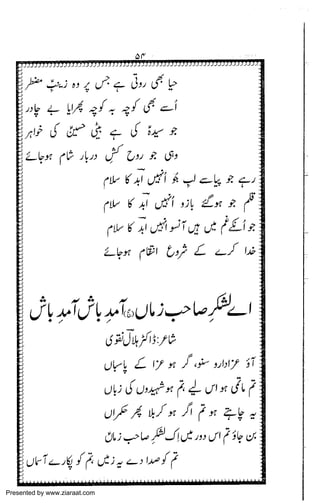 ۵۴
حیا بھی روتی ہے جس پر وہ زینبِؑ مضطر
اُسے بھی کوچہ بہ کوچہ پھرایا بے چادر
جو سیدہؑ کی ہے بیٹی حسینؑ کی خواہر
وہی جو روح کشِ دربارِ شام ہوجائے
رہے جو پیاسے لبِ جُو اُنہیں اَبد کا سلام
قلم جو ہوگئے بازو اُنہیں اَبد کا سلام
جو اُنکے غم میں ہیں آنسو انہیں ابد کا سلام
خدا کرے کے شروع انتقام ہوجائے
اے لشکرِ صاحب زماں (عج) آمد باش آمد باش
شاعر: ڈاکٹر ہلاؔل نقوی
آؤ عزادارو سنو، گر ہو عزا کے پاسباں
تم ماتمی ہو اس لیے تم ہو شہیدوں کی زباں
یہ چاہتے ہو تم اگر ہو کربلا پھر حکمراں
بن جاؤ تم اس دور میں اِک لشکرِ صاحب زماںؑ
تم کو صدا دے یہ زمیں تم کو پکارے آسماں
Presented by www.ziaraat.com